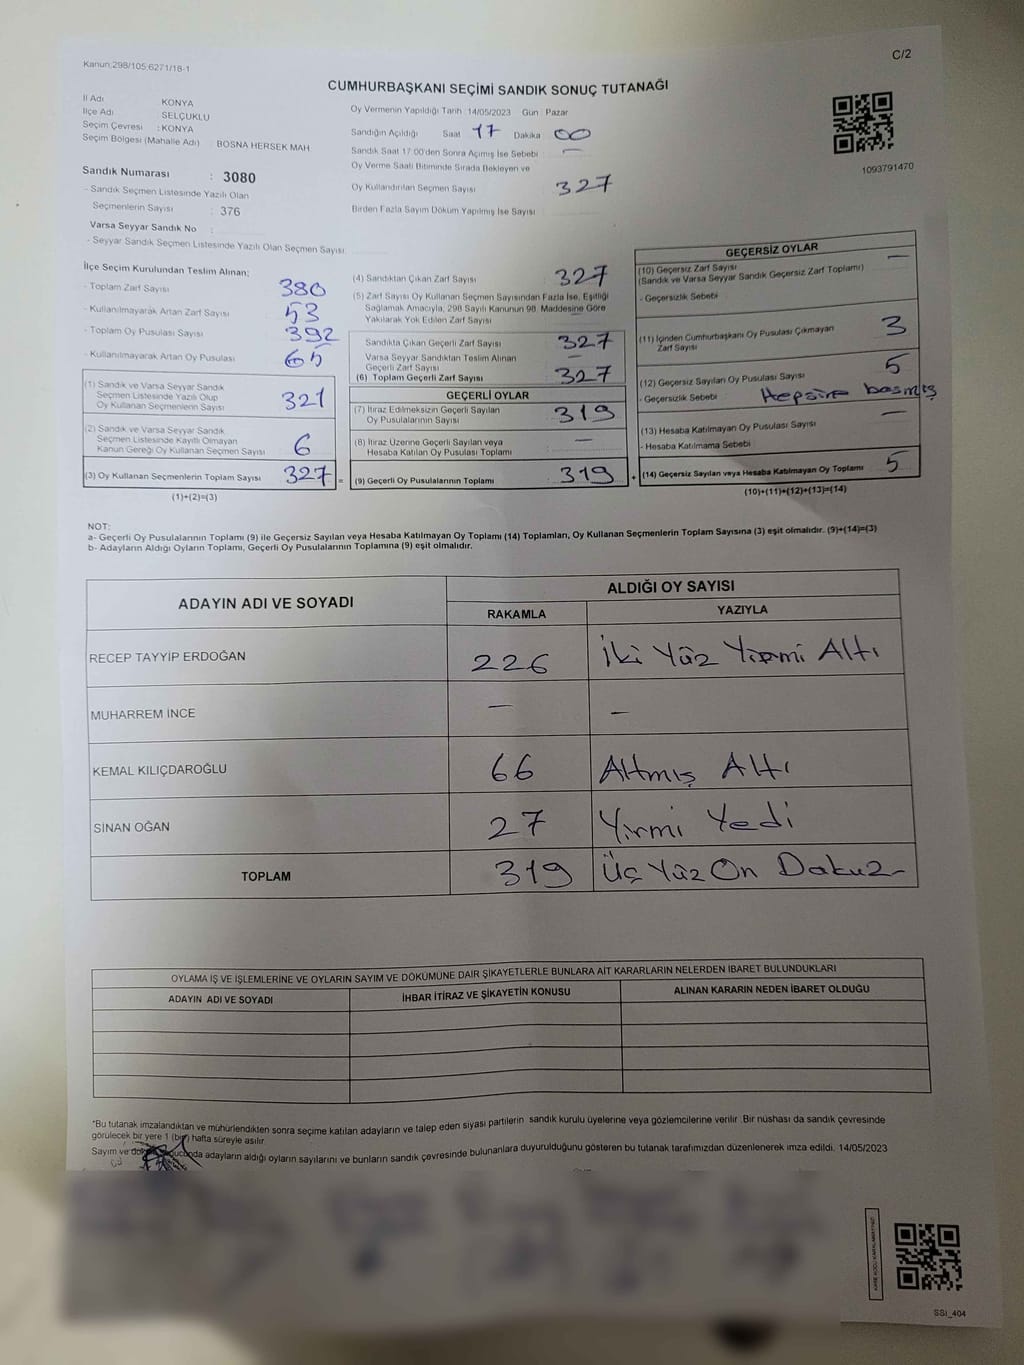 C/2
Kanun:298/105;6271/18-1
CUMHURBAŞKANI SEÇİMİ SANDIK SONUÇ TUTANAĞI
İl Adı KONYA
İlçe Adı SELÇUKLU
Seçim Çevresi : KONYA
Seçim Bölgesi (Mahalle Adı) : BOSNA HERSEK MAH
Sandık Numarası : 3080
- Sandık Seçmen Listesinde Yazılı Olan
Seçmenlerin Sayısı : 376
Varsa Seyyar Sandık No :
- Seyyar Sandık Seçmen Listesinde Yazılı Olan Seçmen Sayısı
Oy Vermenin Yapıldığı Tarih : 14/05/2023 Gün : Pazar
Sandığın Açıldığı Saat 17 Dakika 00
Sandık Saat 17:00'den Sonra Açımış İse Sebebi : —
Oy Verme Saati Bitiminde Sırada Bekleyen ve
Oy Kullandırılan Seçmen Sayısı 327
Birden Fazla Sayım Döküm Yapılmış İse Sayısı
1093791470
İlçe Seçim Kurulundan Teslim Alınan;
- Toplam Zarf Sayısı 380
- Kullanılmayarak Artan Zarf Sayısı 53
- Toplam Oy Pusulası Sayısı 392
- Kullanılmayarak Artan Oy Pusulası 65
(1) Sandık ve Varsa Seyyar Sandık
Seçmen Listesinde Yazılı Olup
Oy Kullanan Seçmenlerin Sayısı 321
(2) Sandık ve Varsa Seyyar Sandık
Seçmen Listesinde Kayıtlı Olmayan
Kanun Gereği Oy Kullanan Seçmen Sayısı 6
(3) Oy Kullanan Seçmenlerin Toplam Sayısı 327 =
(1)+(2)=(3)
(4) Sandıktan Çıkan Zarf Sayısı 327
(5) Zarf Sayısı Oy Kullanan Seçmen Sayısından Fazla İse, Eşitliği
Sağlamak Amacıyla, 298 Sayılı Kanunun 98. Maddesine Göre
Yakılarak Yok Edilen Zarf Sayısı —
Sandıkta Çıkan Geçerli Zarf Sayısı 327
Varsa Seyyar Sandıktan Teslim Alınan
Geçerli Zarf Sayısı —
(6) Toplam Geçerli Zarf Sayısı 327
GEÇERLİ OYLAR
(7) İtiraz Edilmeksizin Geçerli Sayılan
Oy Pusulasının Sayısı 319
(8) İtiraz Üzerine Geçerli Sayılan veya
Hesaba Katılan Oy Pusulası Toplamı —
(9) Geçerli Oy Pusulalarının Toplamı 319 +
GEÇERSİZ OYLAR
(10) Geçersiz Zarf Sayısı —
(Sandık ve Varsa Seyyar Sandık Geçersiz Zarf Toplamı)
- Geçersizlik Sebebi
(11) İçinden Cumhurbaşkanı Oy Pusulası Çıkmayan
Zarf Sayısı 3
(12) Geçersiz Sayılan Oy Pusulası Sayısı 5
- Geçersizlik Sebebi Hepsine basmış
(13) Hesaba Katılmayan Oy Pusulası Sayısı —
- Hesaba Katılmama Sebebi
(14) Geçersiz Sayılan veya Hesaba Katılmayan Oy Toplamı 5
(10)+(11)+(12)+(13)=(14)
NOT:
a- Geçerli Oy Pusulalarının Toplamı (9) ile Geçersiz Sayılan veya Hesaba Katılmayan Oy Toplamı (14) Toplamları, Oy Kullanan Seçmenlerin Toplam Sayısına (3) eşit olmalıdır. (9)+(14)=(3)
b- Adayların Aldığı Oyların Toplamı, Geçerli Oy Pusulalarının Toplamına (9) eşit olmalıdır.
ADAYIN ADI VE SOYADI ALDIĞI OY SAYISI
RAKAMLA YAZIYLA
RECEP TAYYİP ERDOĞAN 226 İki Yüz Yirmi Altı
MUHARREM İNCE — —
KEMAL KILIÇDAROĞLU 66 Altmış Altı
SİNAN OĞAN 27 Yirmi Yedi
TOPLAM 319 Üç Yüz On Dokuz
OYLAMA İŞ VE İŞLEMLERİNE VE OYLARIN SAYIM VE DÖKÜMÜNE DAİR ŞİKAYETLERLE BUNLARA AİT KARARLARIN NELERDEN İBARET BULUNDUKLARI
ADAYIN ADI VE SOYADI İHBAR İTİRAZ VE ŞİKAYETİN KONUSU ALINAN KARARIN NEDEN İBARET OLDUĞU
*Bu tutanak imzalandıktan ve mühürlendikten sonra seçime katılan adayların ve talep eden siyasi partilerin sandık kurulu üyelerine veya gözlemcilerine verilir. Bir nüshası da sandık çevresinde
görülecek bir yere 1 (bir) hafta süreyle asılır.
Sayım ve adayların aldığı oyların sayılarını ve bunların sandık çevresinde bulunanlara duyurulduğunu gösteren bu tutanak tarafımızdan düzenlenerek imza edildi. 14/05/2023
SSI_404